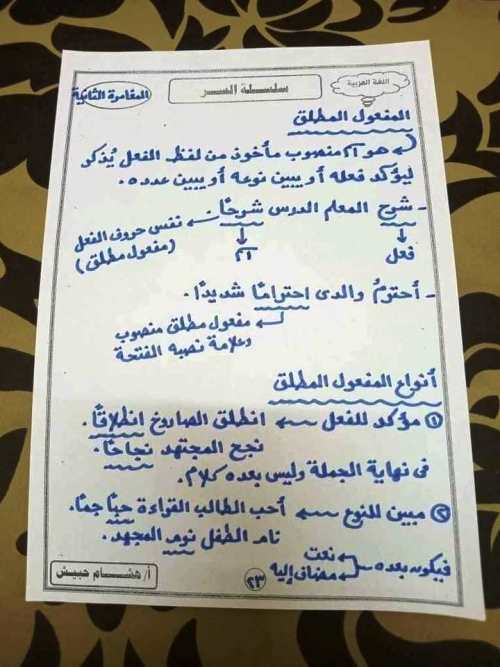 اللغة العربية
سلسلة السر
المقامرة الثانية
المفعول المطلق
هو اسم منصوب مأخوذ من لفظ الفعل يُذكر
ليؤكد فعله أو يبين نوعه أو يبين عدده.
- شرح المعلم الدرس شرحًا ← نفس حروف الفعل
(مفعول مطلق)
فعل
اسم
- أحترمُ والدى احترامًا شديدًا.
مفعول مطلق منصوب
وعلامة نصبه الفتحة
أنواع المفعول المطلق
١ مؤكد للفعل ← انطلق الصاروخ انطلاقًا.
نجح المجتهد نجاحًا.
فى نهاية الجملة وليس بعده كلام.
٢ مبين للنوع ← أحب الطالب القراءة حبًا جمًا.
نام الطفل نوم المجهد.
فيكون بعده ← نعت
← مضاف إليه
أ/ هشام حبيش
٢٣